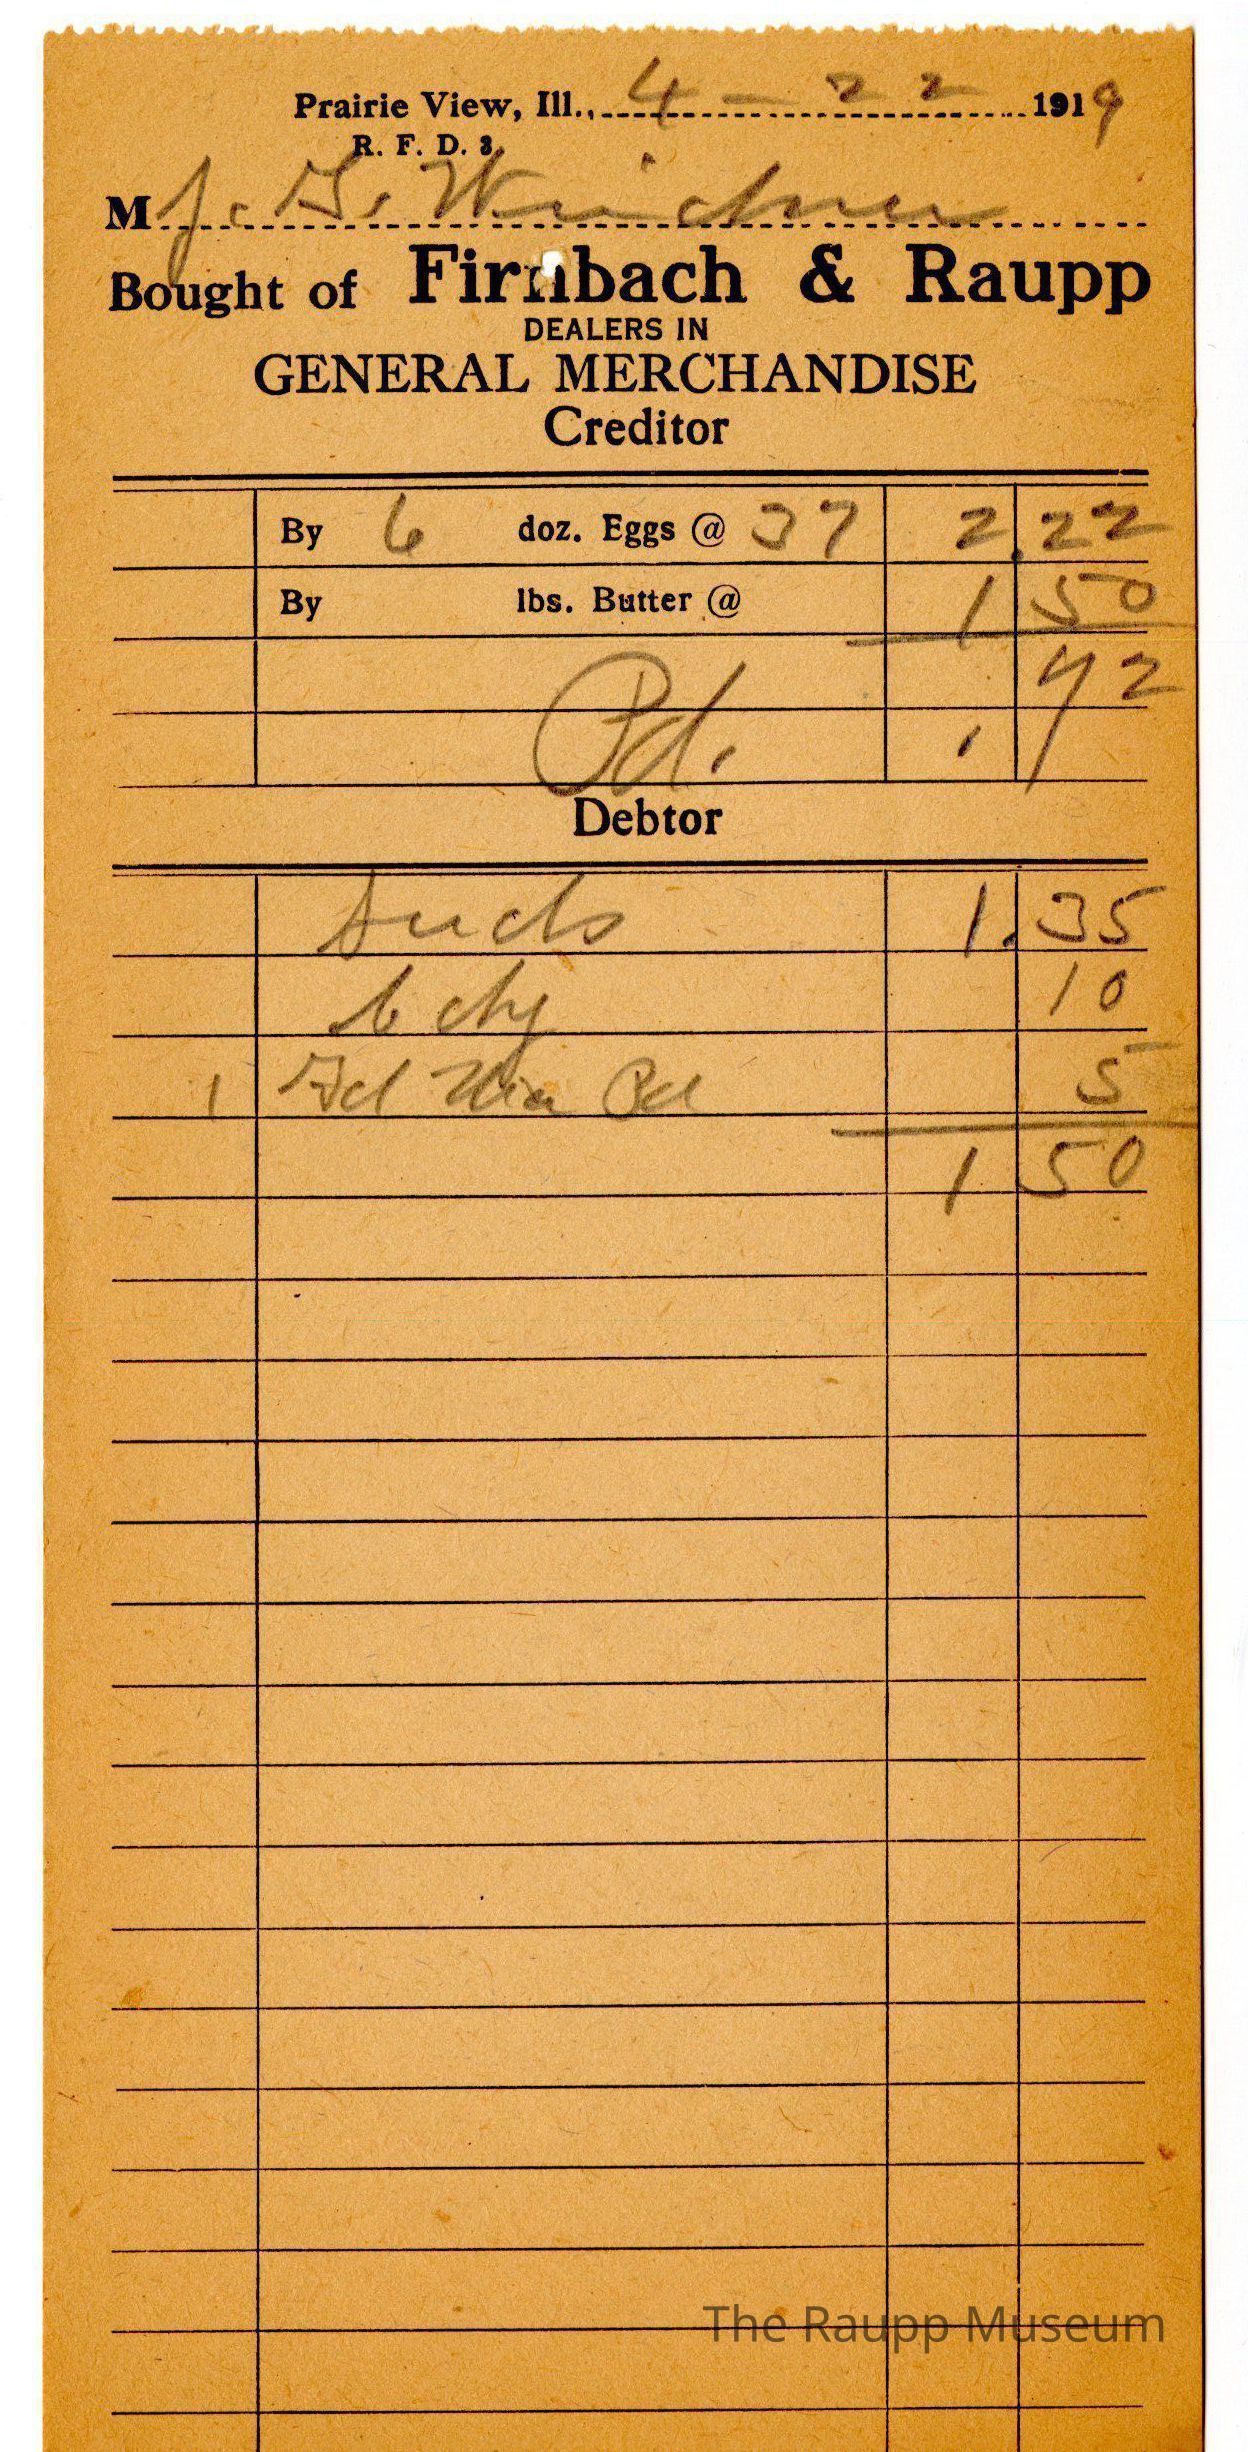 Prairie View, Ill., 4 - 22 1919
R. F. D. 3.
M J. G. Weidner
Bought of Firnbach & Raupp
DEALERS IN
GENERAL MERCHANDISE
Creditor
By 6 doz. Eggs @ 37 2.22
By lbs. Butter @ 1 50
72
Pd.
Debtor
1.35
10
1 Pd 5
1 50
The Raupp Museum